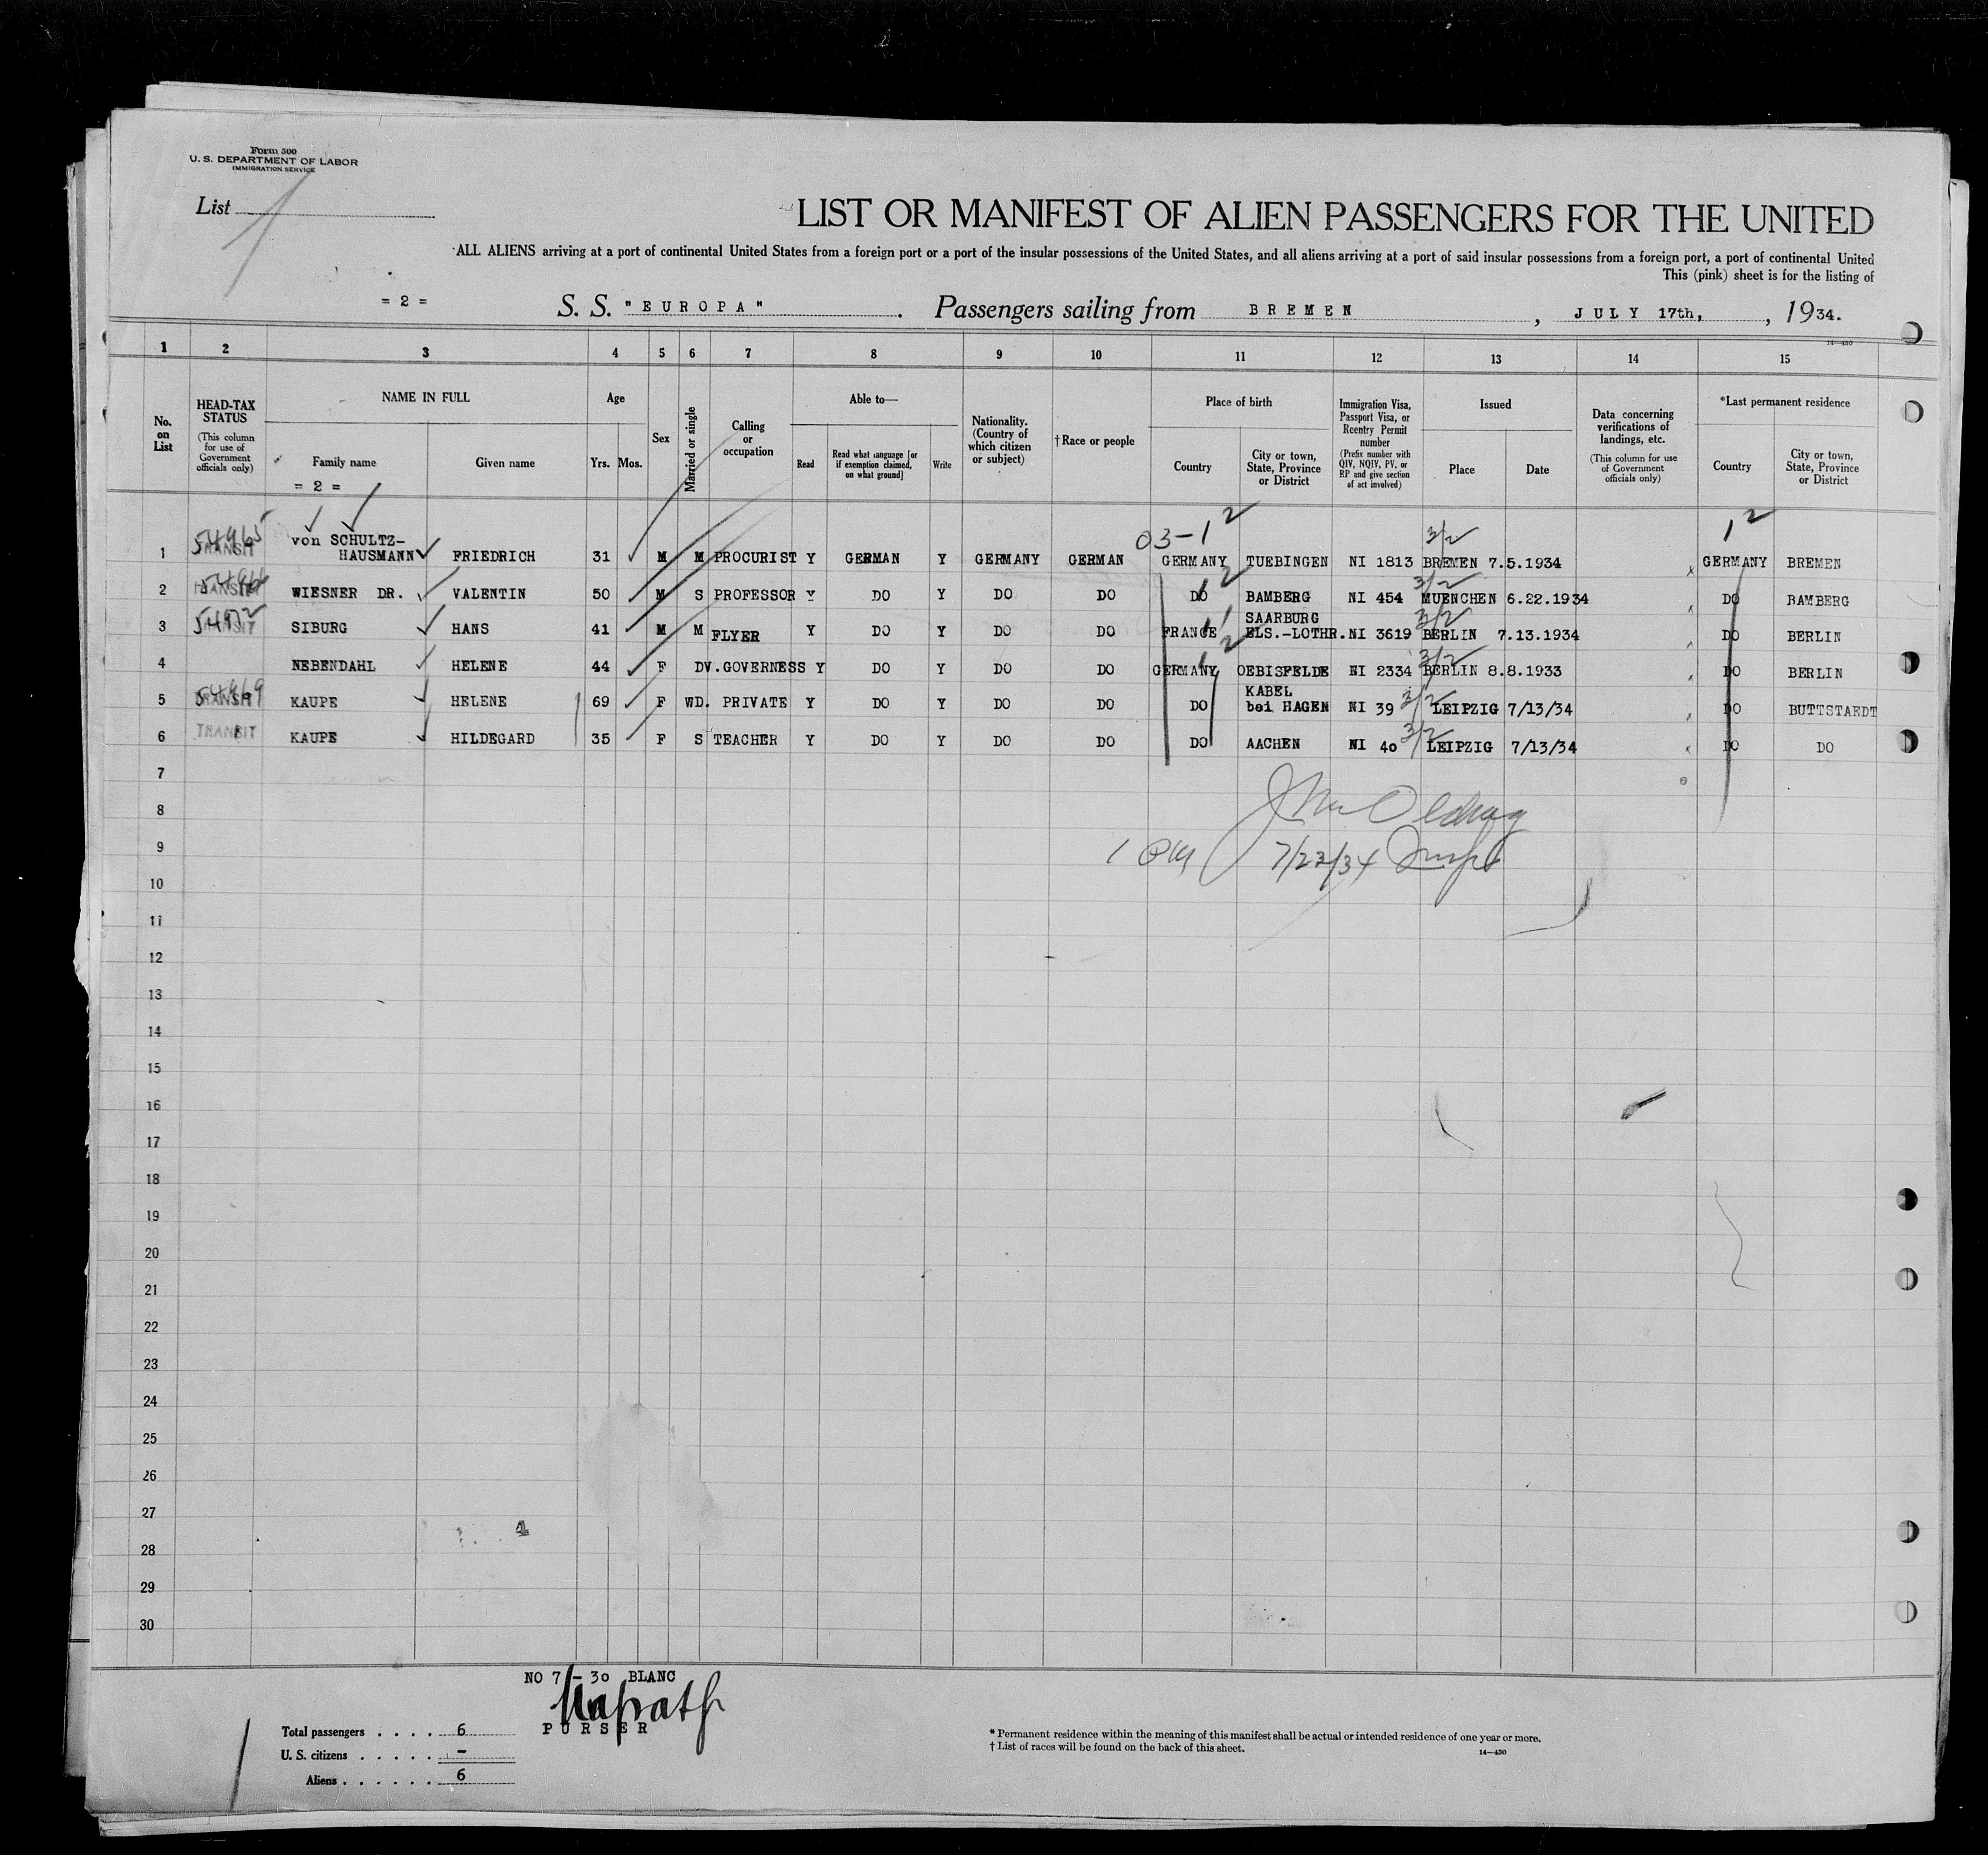 Form 500
U. S. DEPARTMENT OF LABOR
IMMIGRATION SERVICE
List
LIST OR MANIFEST OF ALIEN PASSENGERS FOR THE UNITED
ALL ALIENS arriving at a port of continental United States from a foreign port or a port of the insular possessions of the United States, and all aliens arriving at a port of said insular possessions from a foreign port, a port of continental United
This (pink) sheet is for the listing of
= 2 = S. S. "EUROPA". Passengers sailing from BREMEN, JULY 17th, , 1934.
14—430
1 2 3 4 5 6 7 8 9 10 11 12 13 14 15
No. on List
HEAD-TAX STATUS (This column for use of Government officials only)
NAME IN FULL
Family name
= 2 =
Given name
Age
Yrs. Mos.
Sex
Married or single
Calling or occupation
Able to—
Read
Read what language [or if exemption claimed, on what ground]
Write
Nationality. (Country of which citizen or subject)
†Race or people
Place of birth
Country
City or town, State, Province or District
Immigration Visa, Passport Visa, or Reentry Permit number (Prefix number with QIV, NQIV, PV, or RP and give section of act involved)
Issued
Place
Date
Data concerning verifications of landings, etc. (This column for use of Government officials only)
*Last permanent residence
Country
City or town, State, Province or District
03-1 2
3/2
1 2
1 54965 TRANSIT von SCHULTZ-HAUSMANN FRIEDRICH 31 M M PROCURIST Y GERMAN Y GERMANY GERMAN GERMANY TUEBINGEN NI 1813 BREMEN 7.5.1934 GERMANY BREMEN
2 TRANSIT WIESNER DR. VALENTIN 50 M S PROFESSOR Y DO Y DO DO DO BAMBERG NI 454 3/2 MUENCHEN 6.22.1934 DO BAMBERG
3 TRANSIT SIBURG HANS 41 M M FLYER Y DO Y DO DO FRANCE SAARBURG ELS.-LOTHR. NI 3619 3/2 BERLIN 7.13.1934 DO BERLIN
4 NEBENDAHL HELENE 44 F DV. GOVERNESS Y DO Y DO DO GERMANY OEBISFELDE NI 2334 3/2 BERLIN 8.8.1933 DO BERLIN
5 TRANSIT KAUPE HELENE 69 F WD. PRIVATE Y DO Y DO DO DO KABEL bei HAGEN NI 39 3/2 LEIPZIG 7/13/34 DO BUTTSTAEDT
6 TRANSIT KAUPE HILDEGARD 35 F S TEACHER Y DO Y DO DO DO AACHEN NI 40 3/2 LEIPZIG 7/13/34 DO DO
7
8
9 7/23/34
10
11
12
13
14
15
16
17
18
19
20
21
22
23
24
25
26
27
28
29
30
NO 7 - 30 BLANC
PURSER
Total passengers . . . . 6
U. S. citizens . . . . . -
Aliens . . . . . . 6
* Permanent residence within the meaning of this manifest shall be actual or intended residence of one year or more.
† List of races will be found on the back of this sheet.
14—430